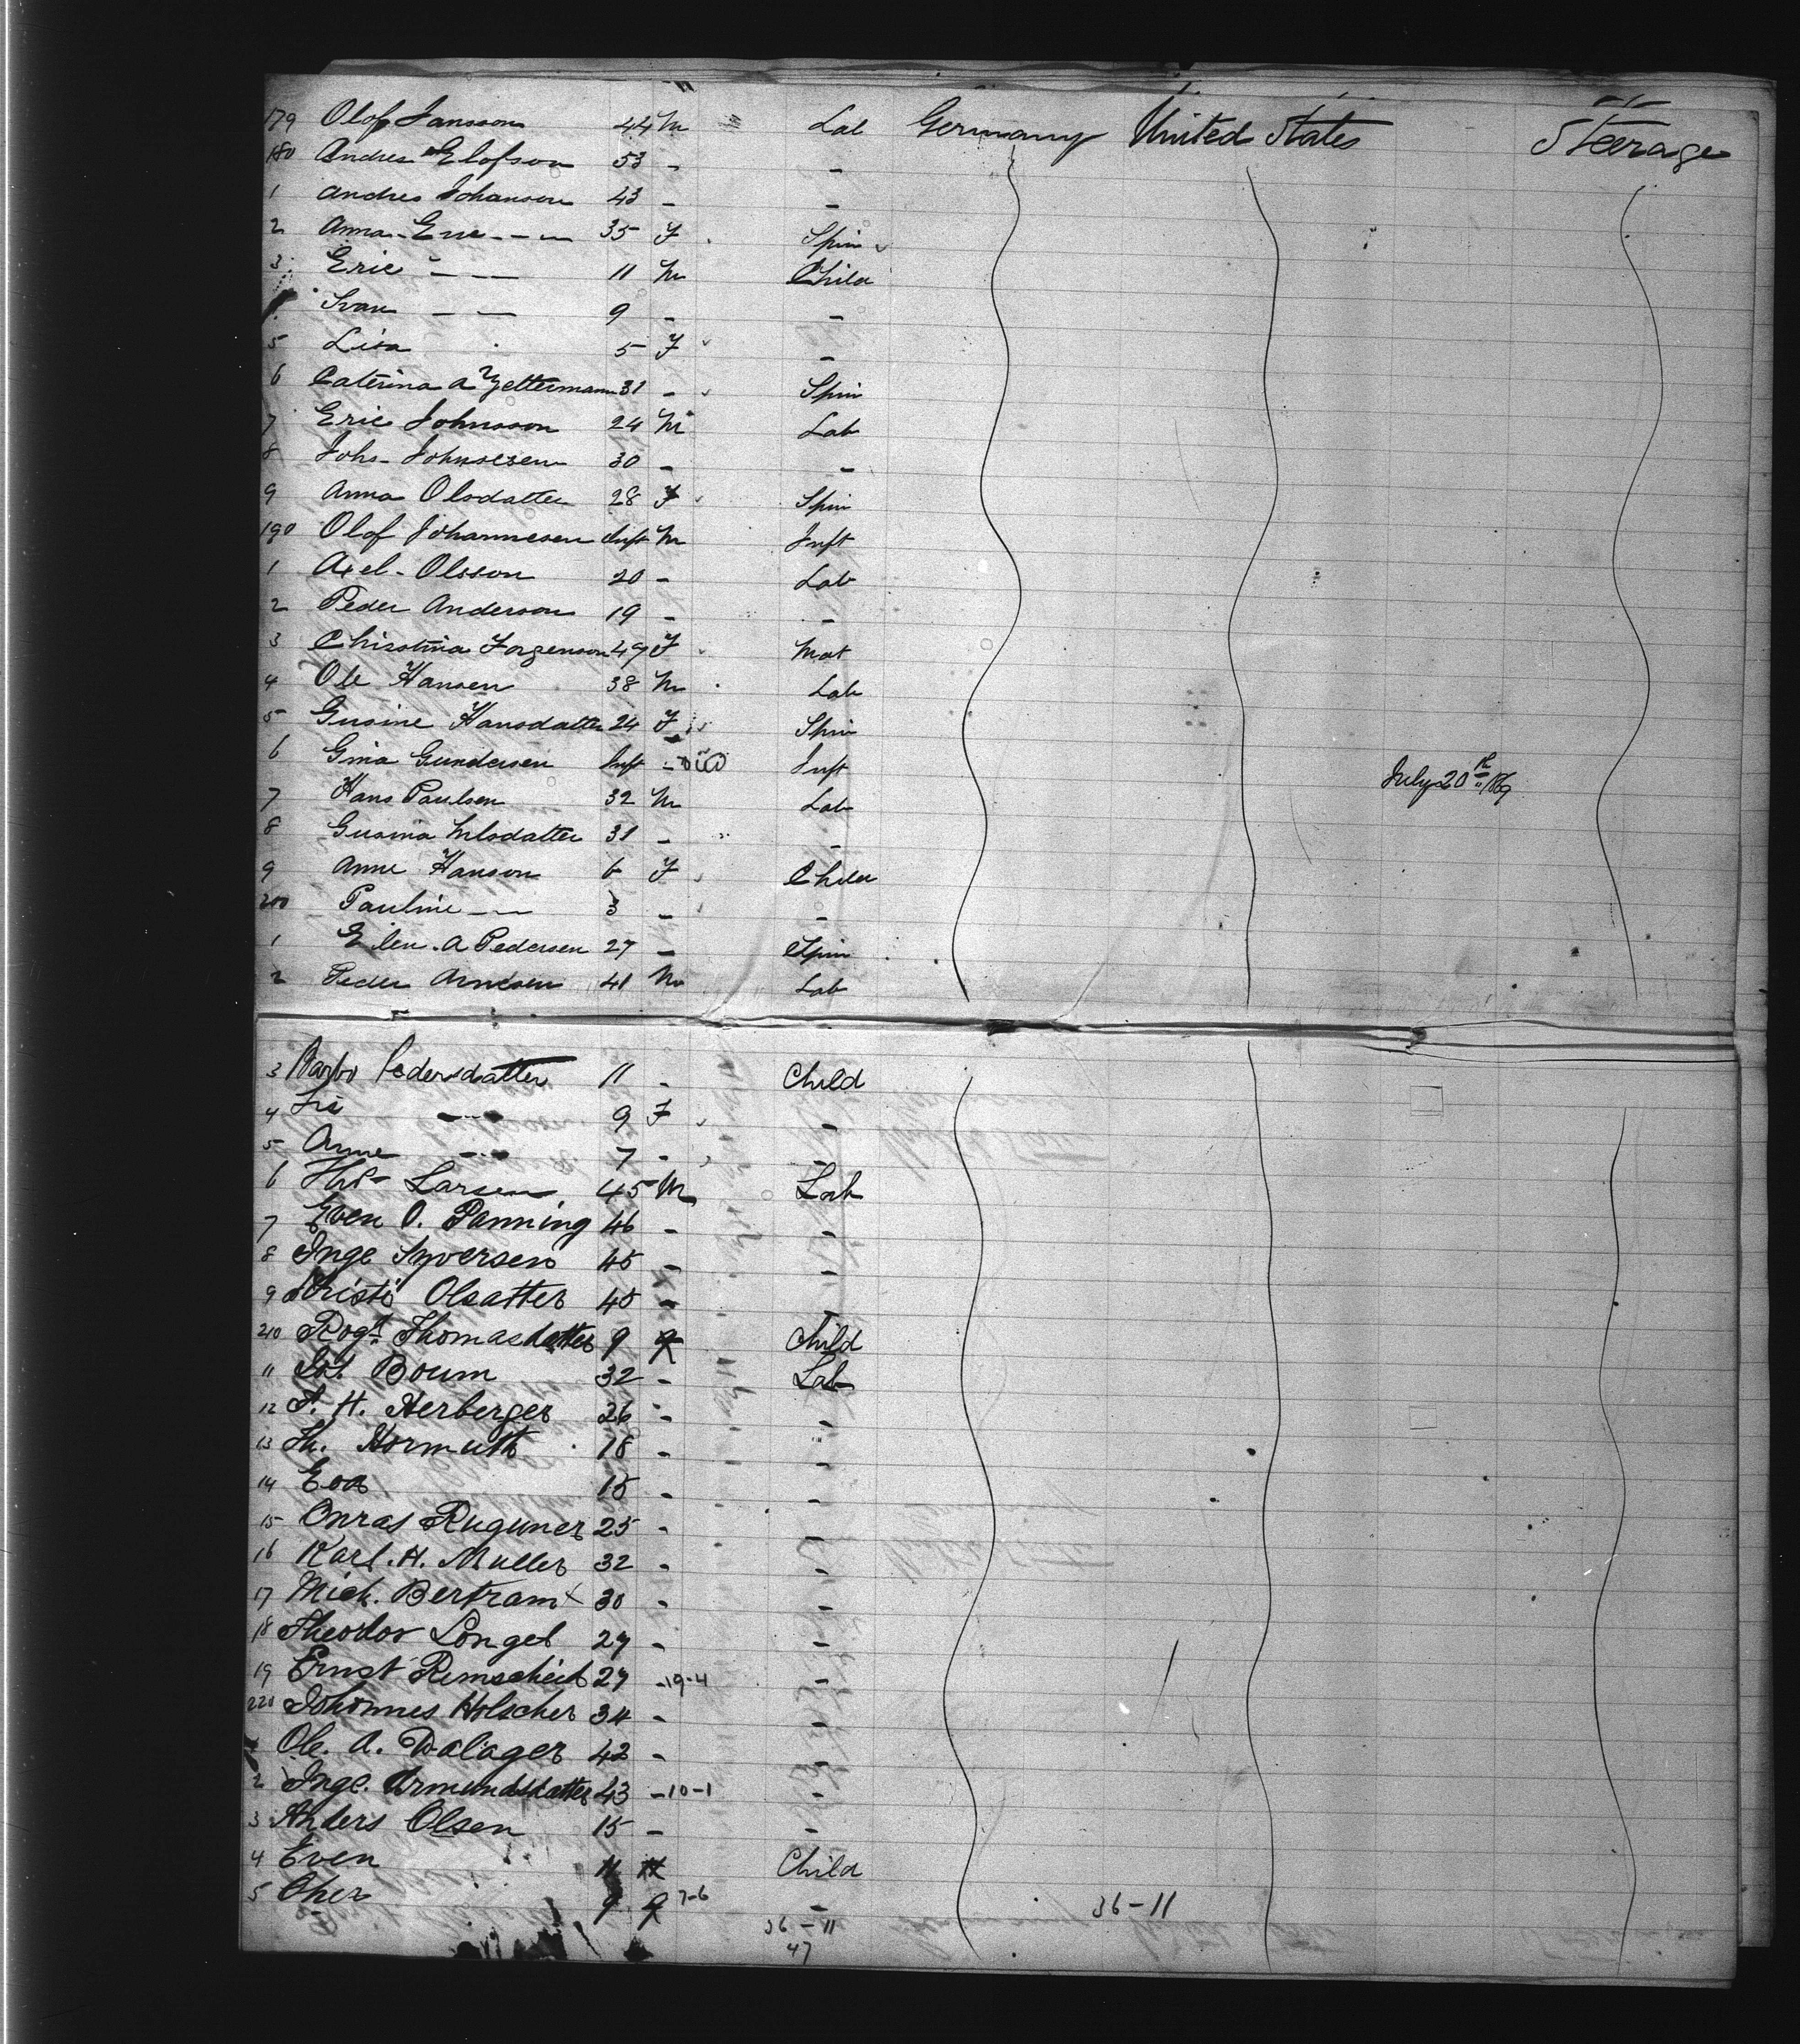 179 Olof Jansson 44 M Lab Germany United States Steerage
180 Andres Elofson 53 - -
1 Andres Johanson 43 - -
2 Anna - - - 35 F Spin
3 Eric - - - 11 M Child
Svan - - 9 - -
5 Lisa 5 F -
6 Caterina A Zettermann 31 - Spin
7 Eric Johnsson 24 M Lab
8 Johs- Johnsesen 30 - -
9 Anna Olsdatter 28 F Spin
190 Olof Johannesen Inft M Inft
1 Axel - Olsson 20 - Lab
2 Peder Anderson 19 - -
3 Chisstina Jorgenson 49 F Mat
4 Ole Hansen 38 M Lab
5 Gusine Hansdatter 24 F Spin
6 Gina Gundersen Inft - Inft July 20th 1869
7 Hans Paulsen 32 M Lab
8 Gusina Nilsdatter 31 - -
9 Anne Hanson 6 F Child
200 Pauline - - 3 - -
1 Elen. A Pedersen 27 - Spin
2 Peder Arnesen 41 M Lab
3 Barbo Pedersdatter 11 - Child
4 - - 9 F -
5 Anne - - 7 - -
6 Larsen 45 M Lab
7 Even O. Panning 46 - -
8 Inge Syversen 45 - -
9 Kristi Olsatter 45 - -
210 Rogn. Thomasdatter 9 9 Child
11 Boum 32 - Lab
12 P. H. Herberger 26 - -
13 Th. Hormuth 18 - -
14 Eva 15 - -
15 Onras Rugumer 25 - -
16 Karl. H. Muller 32 - -
17 Mich. Bertram 30 - -
18 Theodor Longel 27 - -
19 Ernst Remscheid 27 - 19-4 -
220 Johonnes Holscher 34 - -
Ole. A. Dalager 42 - -
2 Inge. Armundsdatter 43 - 10-1 -
3 Anders Olsen 15 - -
4 Even 11 11 Child
5 9 9 7-6 - 36-11
36-11
47